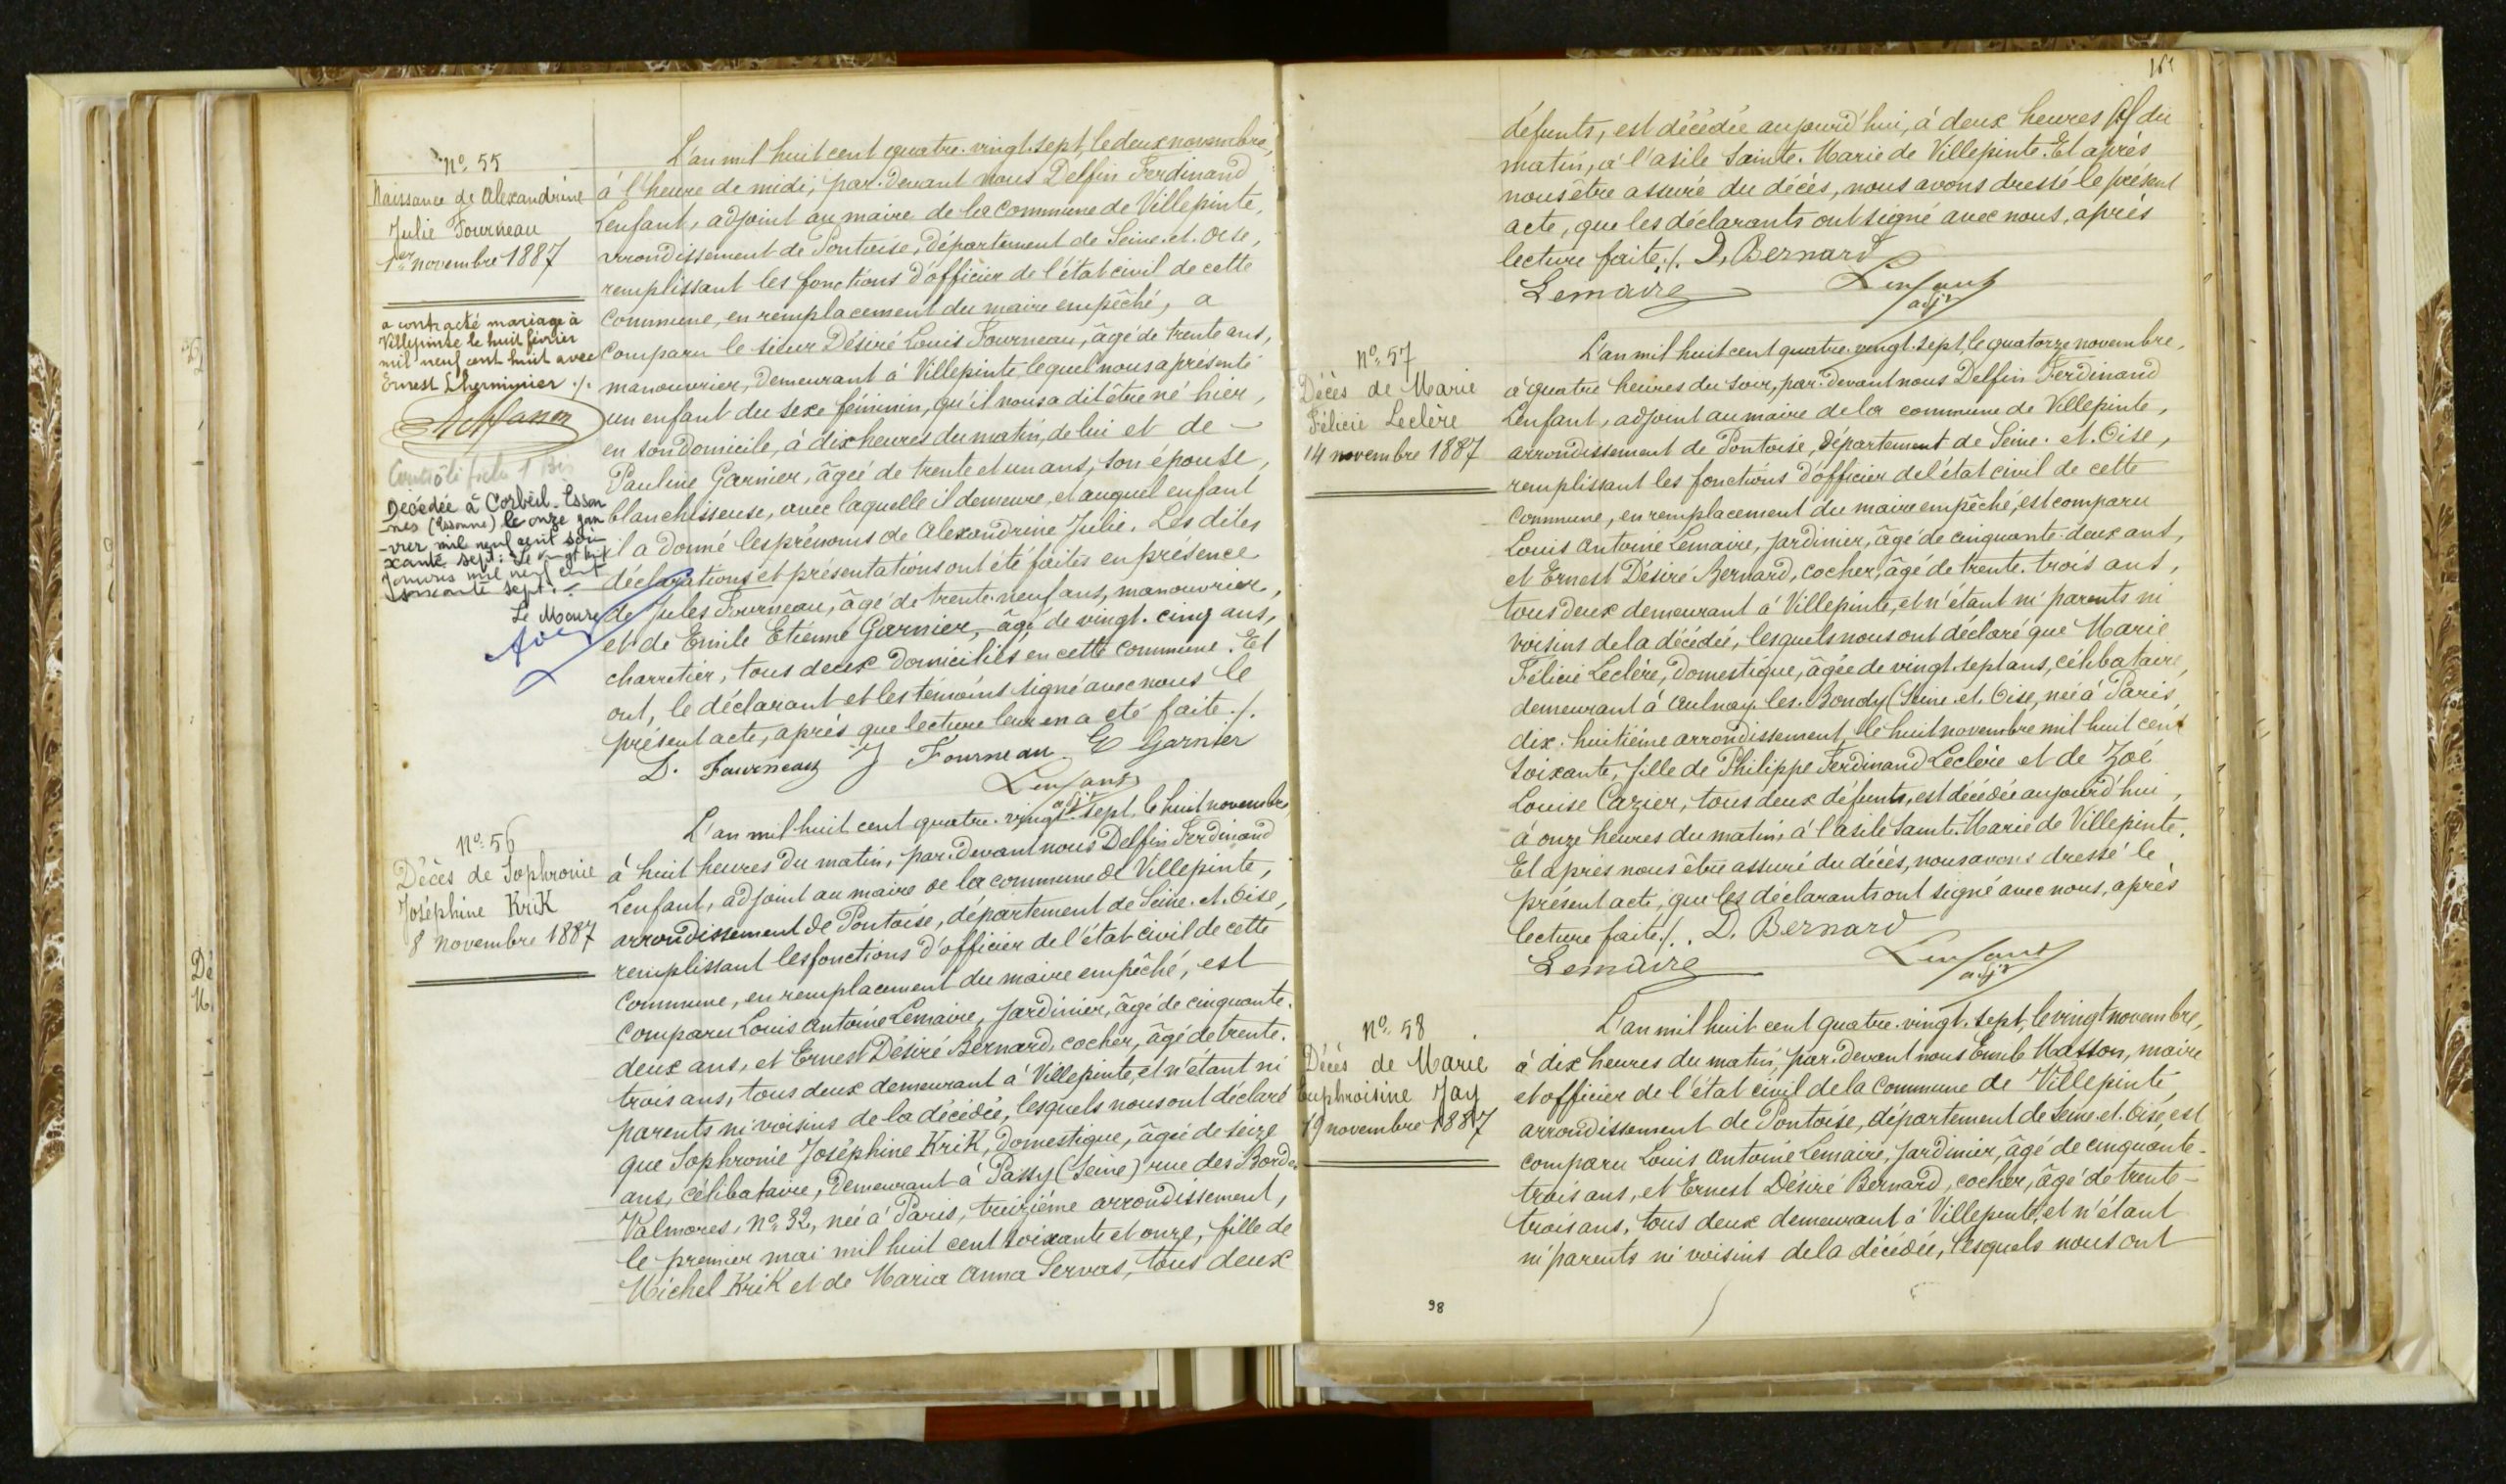 N° 55
Naissance de Alexandrine
Julie Fourneau
1er novembre 1887
a contracté mariage à
Villepinte le huit février
mil neuf cent huit avec
Ernest Lherminier ./.
Décédée à Corbeil-Esson
-nes (Essonne) le onze jan
-vier mil neuf cent soi-
xante sept: Le vingt huit
Janvier mil neuf cent
soixante sept:
Le Maire
L'an mil huit cent quatre-vingt-sept, le deux novembre,
à l'heure de midi, par-devant nous Delfin Ferdinand
Lenfant, adjoint au maire de la commune de Villepinte,
arrondissement de Pontoise, département de Seine-et-Oise,
remplissant les fonctions d'officier de l'état civil de cette
commune, en remplacement du maire empêché, a
comparu le sieur Désiré Louis Fourneau, âgé de trente ans,
manouvrier, demeurant à Villepinte, lequel nous a présenté
un enfant du sexe féminin, qu'il nous a dit être né hier,
en son domicile, à dix heures du matin, de lui et de -
Pauline Garnier, âgée de trente et un ans, son épouse,
blanchisseuse, avec laquelle il demeure, et auquel enfant
il a donné les prénoms de Alexandrine Julie. Les dites
déclarations et présentations ont été faites en présence
de Jules Fourneau, âgé de trente-neuf ans, manouvrier,
et de Emile Etienne Garnier, âgé de vingt-cinq ans,
charretier, tous deux domiciliés en cette commune. Et
ont, le déclarant et les témoins signé avec nous le
présent acte, après que lecture leur en a été faite ./.
D. Fourneau J Fourneau E Garnier
Lenfant
adjt
N° 56
Décès de Sophronie
Joséphine Krik
8 novembre 1887
L'an mil huit cent quatre-vingt-sept, le huit novembre,
à huit heures du matin, par-devant nous Delfin Ferdinand
Lenfant, adjoint au maire de la commune de Villepinte,
arrondissement de Pontoise, département de Seine-et-Oise,
remplissant les fonctions d'officier de l'état civil de cette
commune, en remplacement du maire empêché, est
comparu Louis Antoine Lemaire, jardinier, âgé de cinquante-
deux ans, et Ernest Désiré Bernard, cocher, âgé de trente-
trois ans, tous deux demeurant à Villepinte, et n'étant ni
parents ni voisins de la décédée, lesquels nous ont déclaré
que Sophronie Joséphine Krik, domestique, âgée de seize
ans, célibataire, demeurant à Passy (Seine) rue des Bordes
Valmores, N° 32, née à Paris, treizième arrondissement,
le premier mai mil huit cent soixante et onze, fille de
Michel Krik et de Maria Anna Servas, tous deux
défunts, est décédée aujourd'hui, à deux heures du
matin, à l'asile Sainte-Marie de Villepinte. Et après
nous être assuré du décès, nous avons dressé le présent
acte, que les déclarants ont signé avec nous, après
lecture faite ./. D. Bernard
Lemaire Lenfant
adjt
N° 57
Décès de Marie
Félicie Leclère
14 novembre 1887
L'an mil huit cent quatre-vingt-sept, le quatorze novembre,
à quatre heures du soir, par-devant nous Delfin Ferdinand
Lenfant, adjoint au maire de la commune de Villepinte,
arrondissement de Pontoise, département de Seine-et-Oise,
remplissant les fonctions d'officier de l'état civil de cette
commune, en remplacement du maire empêché, est comparu
Louis Antoine Lemaire, jardinier, âgé de cinquante-deux ans,
et Ernest Désiré Bernard, cocher, âgé de trente-trois ans,
tous deux demeurant à Villepinte, et n'étant ni parents ni
voisins de la décédée, lesquels nous ont déclaré que Marie
Félicie Leclère, domestique, âgée de vingt-sept ans, célibataire,
demeurant à Aulnay-les-Bondy (Seine-et-Oise, née à Paris,
dix-huitième arrondissement, le huit novembre mil huit cent
soixante, fille de Philippe Ferdinand Leclère et de Zoé
Louise Cazier, tous deux défunts, est décédée aujourd'hui,
à onze heures du matin, à l'asile Sainte-Marie de Villepinte.
Et après nous être assuré du décès, nous avons dressé le
présent acte, que les déclarants ont signé avec nous, après
lecture faite ./. D. Bernard
Lemaire Lenfant
adjt
N° 58
Décès de Marie
Euphroisine Jay
19 novembre 1887
L'an mil huit cent quatre-vingt-sept, le vingt novembre,
à dix heures du matin, par-devant nous Emile Masson, maire
et officier de l'état civil de la commune de Villepinte,
arrondissement de Pontoise, département de Seine-et-Oise, est
comparu Louis Antoine Lemaire, jardinier, âgé de cinquante-
trois ans, et Ernest Désiré Bernard, cocher, âgé de trente-
trois ans, tous deux demeurant à Villepinte, et n'étant
ni parents ni voisins de la décédée, lesquels nous ont
98